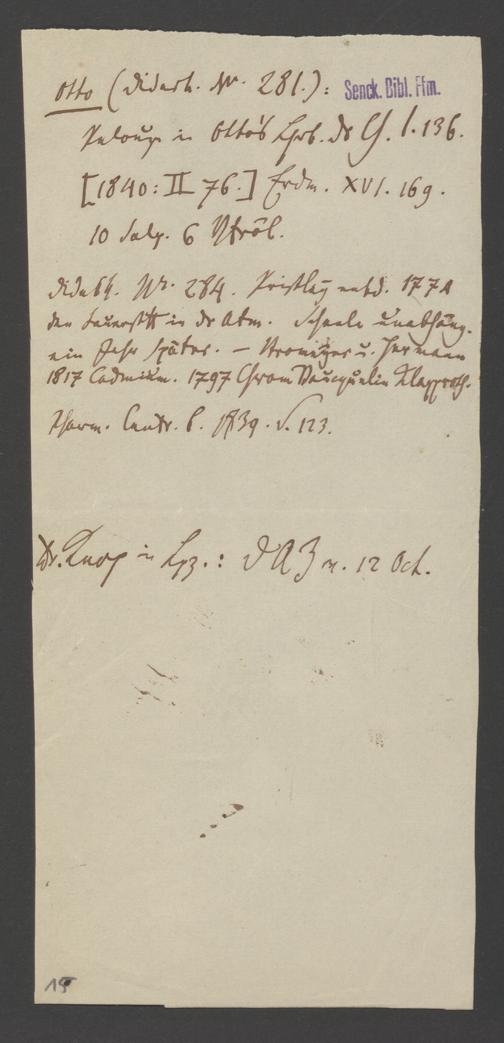 Otto (Didask. Nr. 281.): Senck. Bibl. Ffm.
Pelouze in Otto's Lhrb. der Ch. I. 136.
[1840: II 76.] Erdm. XVI. 169.
10 Salp. 6 Vitriol.
Didask. Nr. 284. Pristley entd. 1774
den Sauerstoff in der Atm. Scheele unabhäng.
ein Jahr später. – Stromeyer u. Hermann
1817 Cadmium. 1797 Chrom Vauquelin Klaproth.
Pharm. Centr. b. 1839. S. 123.
Dr. Knop in Lpz.: DAZ v. 12 Oct.
15